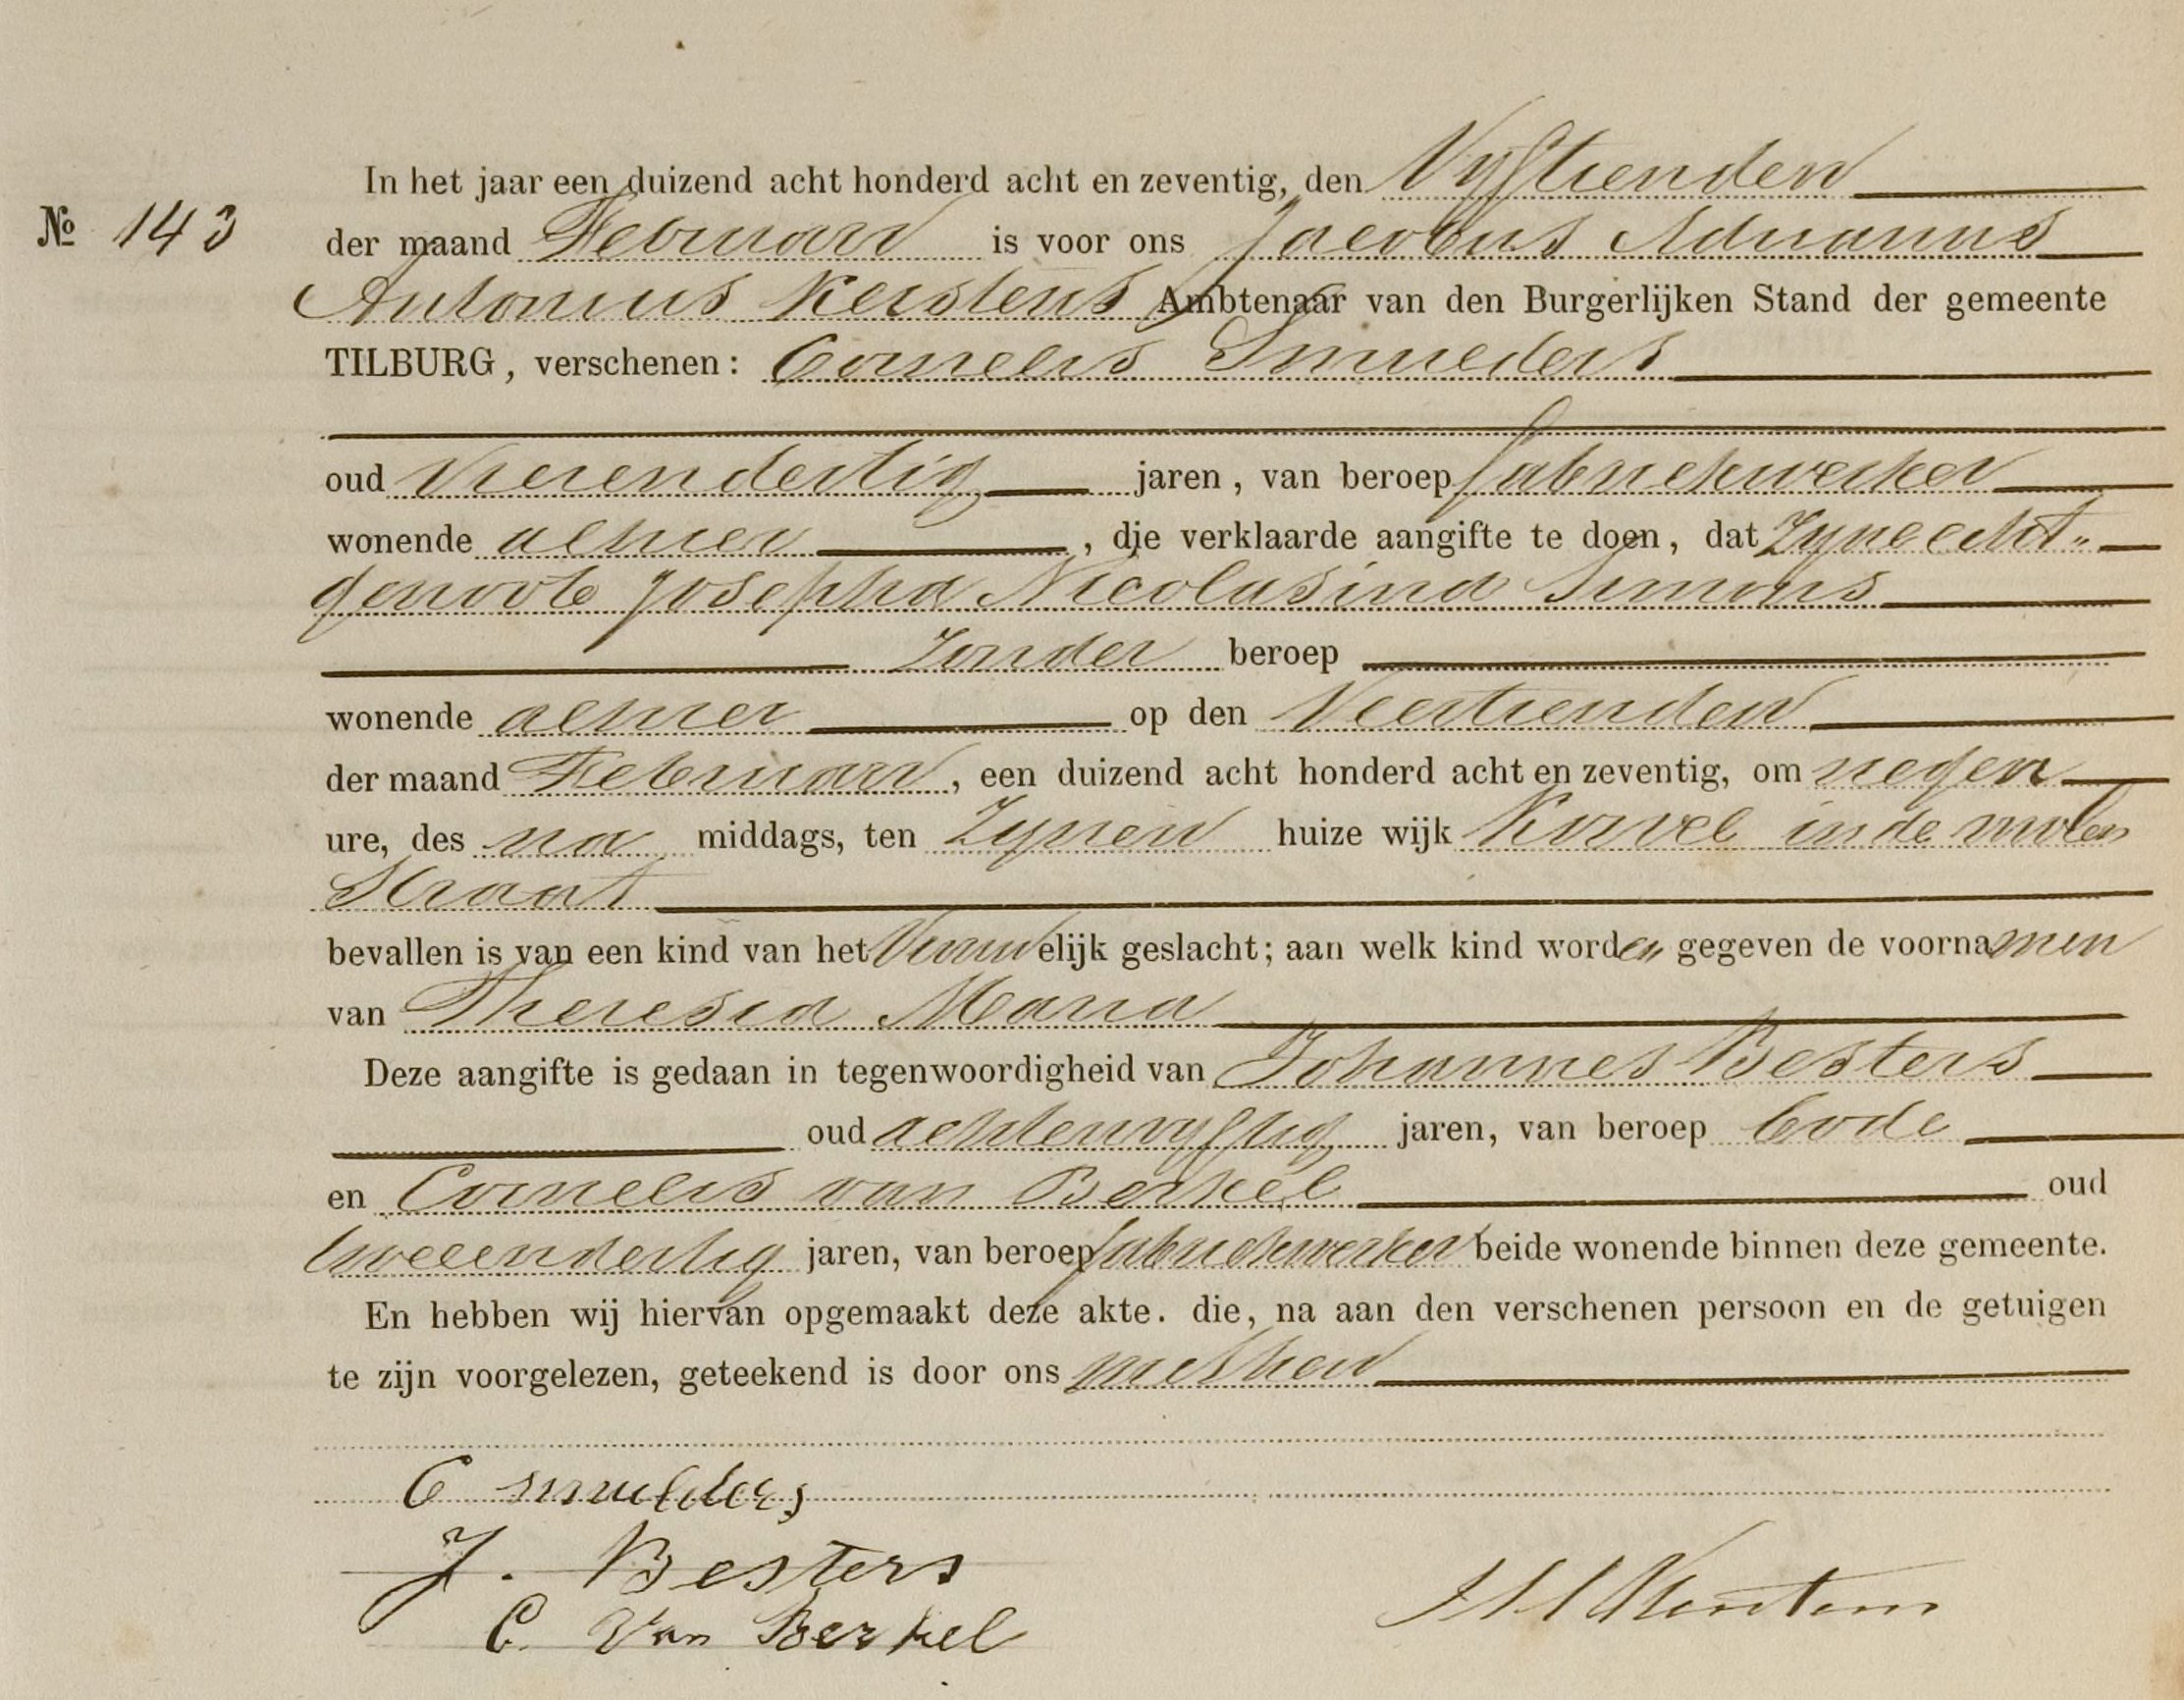 In het jaar een duizend acht honderd acht en zeventig, den Vyftienden
№ 143
der maand Februari is voor ons Jacobus Adrianus
Antonius Kerstens Ambtenaar van den Burgerlijken Stand der gemeente
TILBURG, verschenen: Cornelis Smulders
oud vierendertig jaren, van beroep fabriekwerker
wonende alhier, die verklaarde aangifte te doen, dat Zyne echt„
genoote Josepha Nicolasina Simons
Zonder beroep
wonende alhier op den Veertienden
der maand Februari, een duizend acht honderd acht en zeventig, om negen
ure, des na middags, ten Zynen huize wijk Korvel in de molen
Straat
bevallen is van een kind van het Vrouwelijk geslacht; aan welk kind worden gegeven de voornamen
van Theresia Maria
Deze aangifte is gedaan in tegenwoordigheid van Johannes Besters
oud achtenvyftig jaren, van beroep bode
en Cornelis van Berkel oud
tweeendertig jaren, van beroep fabriekwerker beide wonende binnen deze gemeente.
En hebben wij hiervan opgemaakt deze akte. die, na aan den verschenen persoon en de getuigen
te zijn voorgelezen, geteekend is door ons met hen
C smulders
J. Besters
C. Van Berkel